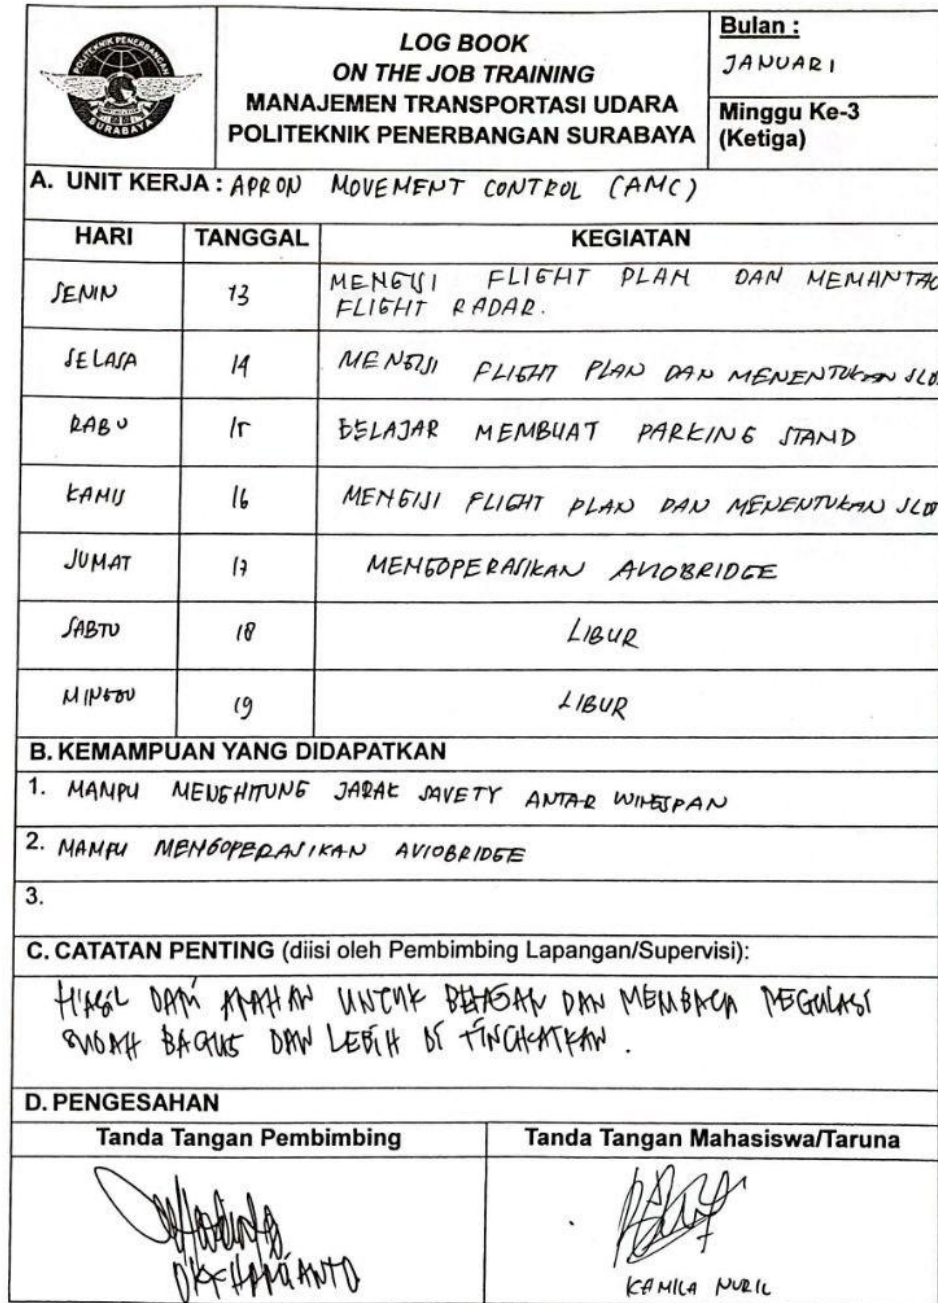 POLITEKNIK PENERBANGAN
SURABAYA
LOG BOOK
ON THE JOB TRAINING
MANAJEMEN TRANSPORTASI UDARA
POLITEKNIK PENERBANGAN SURABAYA
Bulan :
JANUARI
Minggu Ke-3
(Ketiga)
A. UNIT KERJA : APRON MOVEMENT CONTROL (AMC)
HARI TANGGAL KEGIATAN
SENIN 13 MENGISI FLIGHT PLAN DAN MEMANTAU
FLIGHT RADAR.
SELASA 14 MENGISI FLIGHT PLAN DAN MENENTUKAN SLO
RABU 15 BELAJAR MEMBUAT PARKING STAND
KAMIS 16 MENGISI FLIGHT PLAN DAN MENENTUKAN SLOT
JUMAT 17 MENGOPERASIKAN AVIOBRIDGE
SABTU 18 LIBUR
MINGGU 19 LIBUR
B. KEMAMPUAN YANG DIDAPATKAN
1. MAMPU MENGHITUNG JARAK SAVETY ANTAR WINGSPAN
2. MAMPU MENGOPERASIKAN AVIOBRIDGE
3.
C. CATATAN PENTING (diisi oleh Pembimbing Lapangan/Supervisi):
HASIL DARI ARAHAN UNTUK DAN MEMBACA REGULASI
SUDAH BAGUS DAN LEBIH DI TINGKATKAN .
D. PENGESAHAN
Tanda Tangan Pembimbing Tanda Tangan Mahasiswa/Taruna
KAMILA NURIL